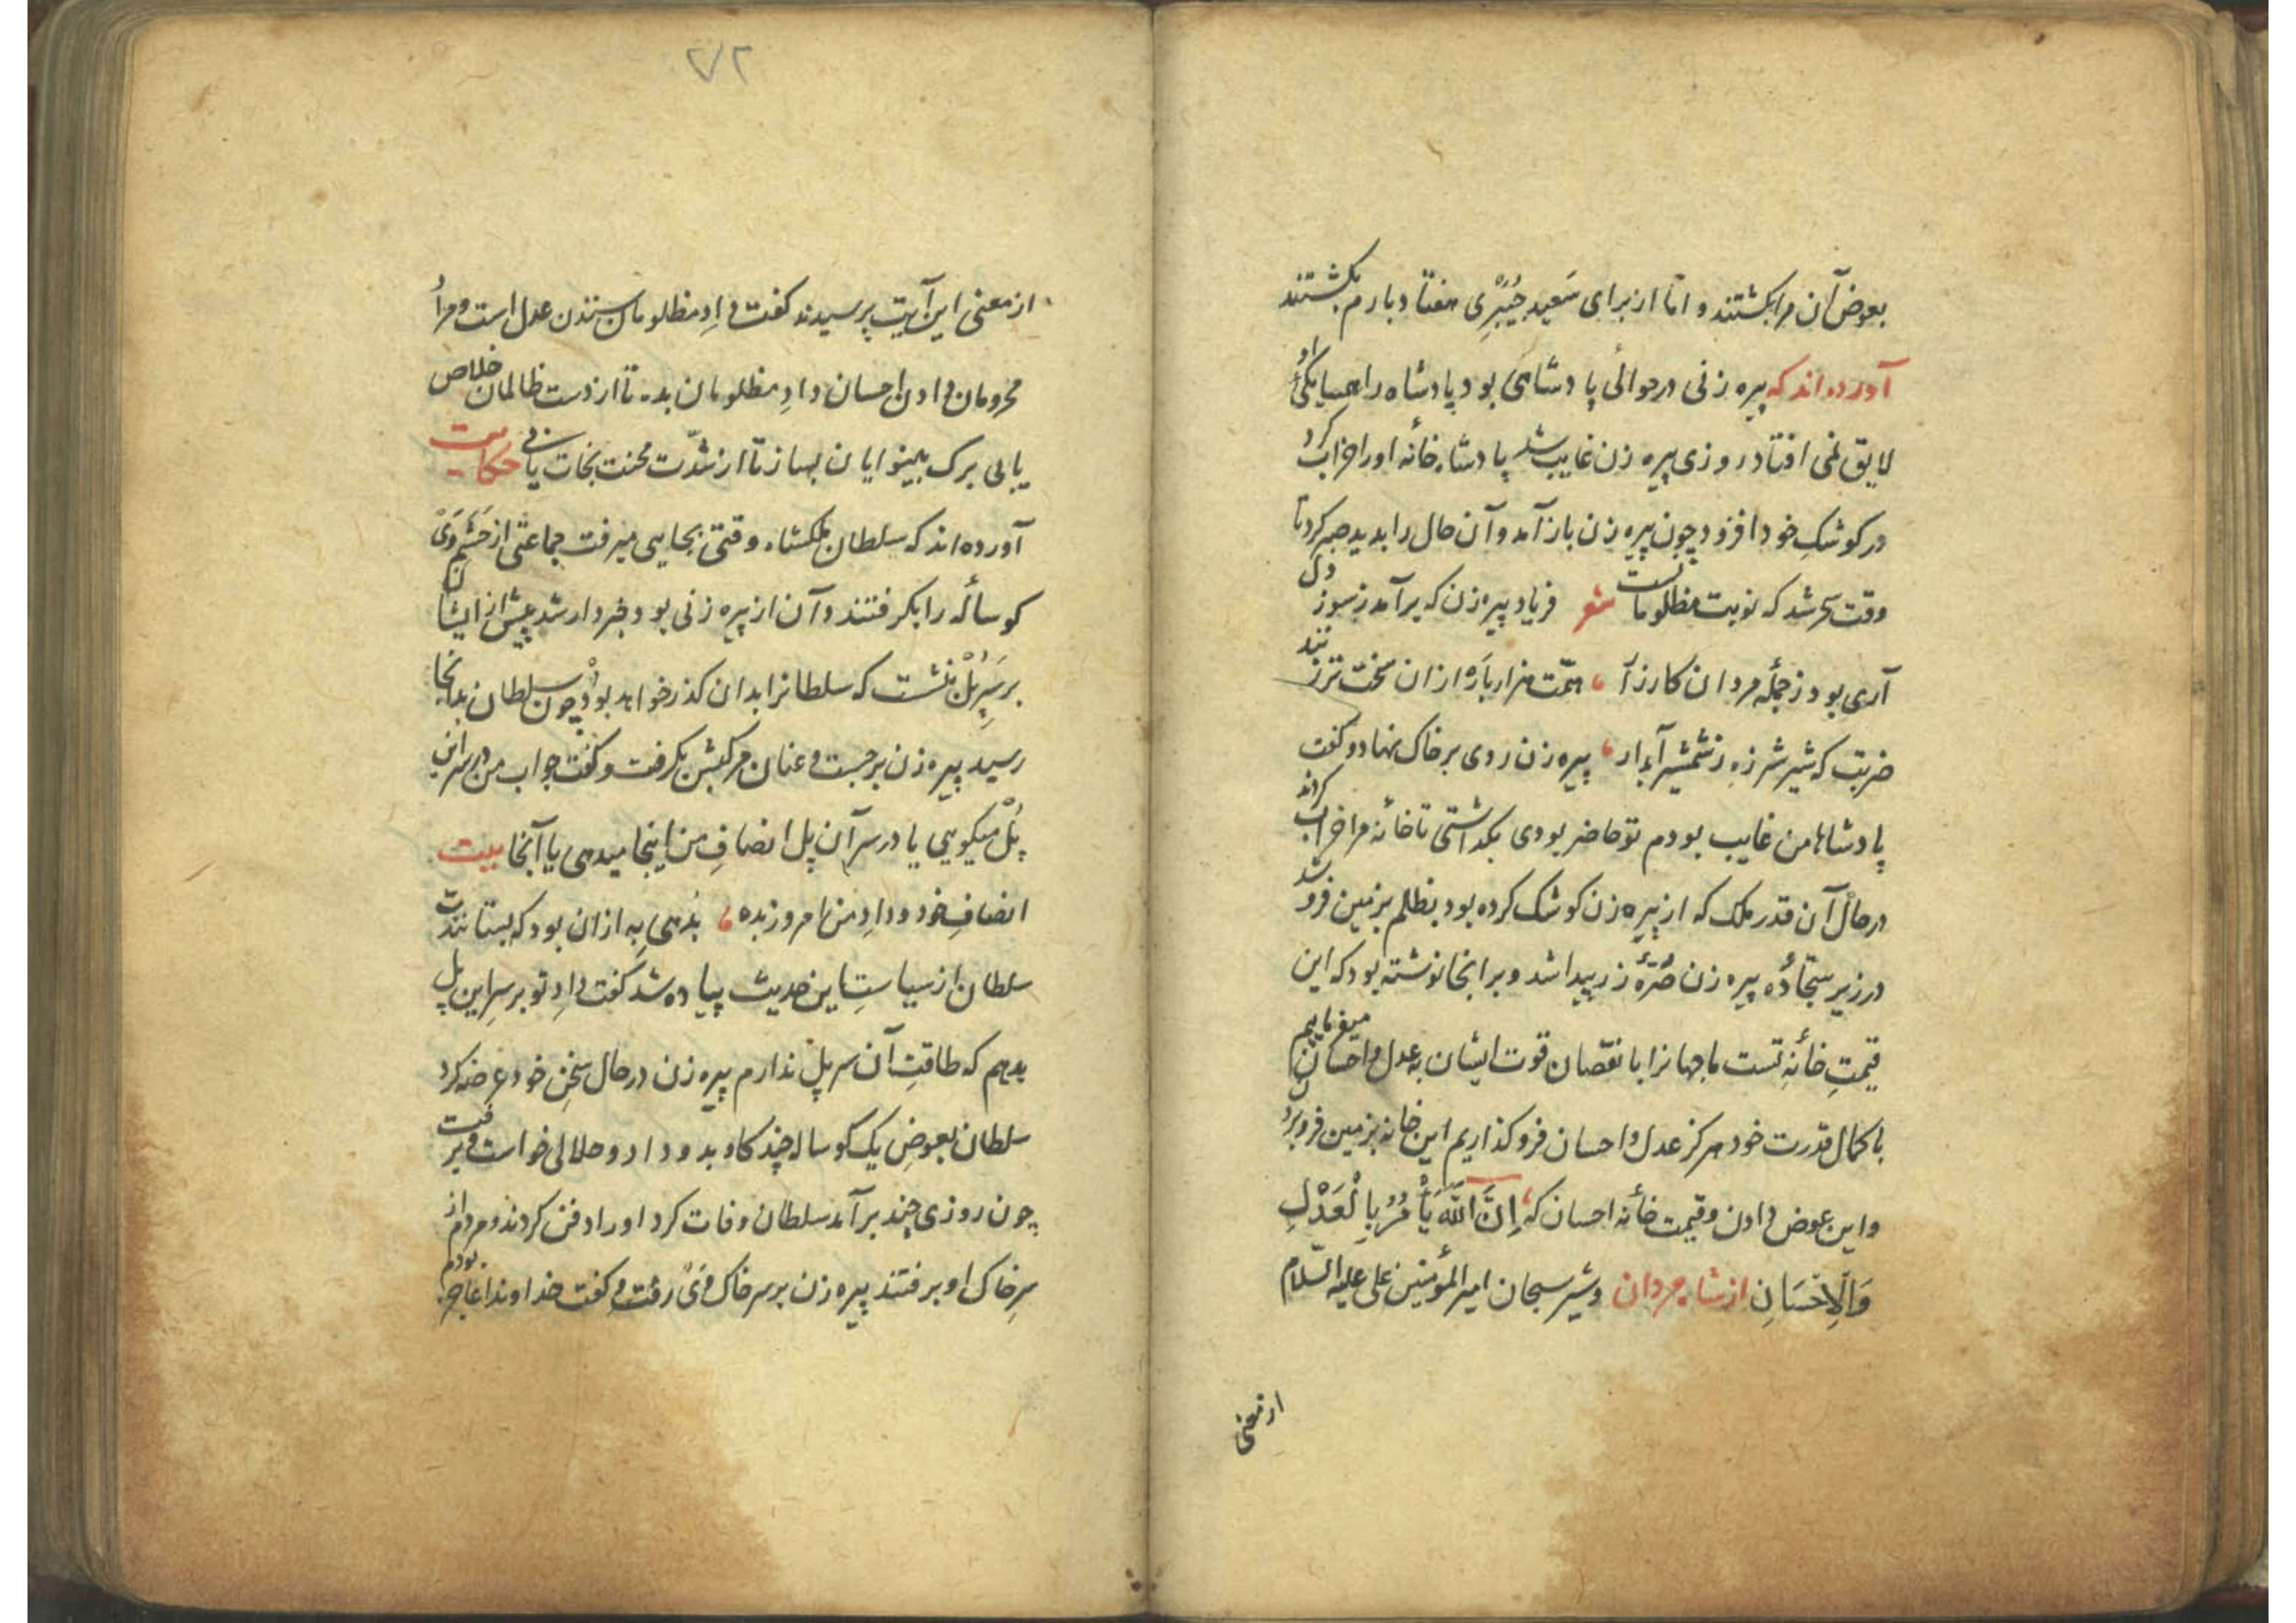 بعوض آن مرا بکشتند و اما از برای سعید جُبَیْری هفتاد بارم بکشتند
آورده اند که پیره زنی در حوالٔی پادشاهی بود پادشاه را همسایگی او
لایق نمی افتاد روزی پیره زن غایب شد پادشاه خانٔه او را خراب کرد
در کوشکِ خود افزود چون پیره زن باز آمد و آن حال را بدید صبر کرد تا
وقت سحر شد که نوبت مظلومانست شعر فریاد پیره زن که برآمد ز سوز دل
آری بود ز جملٔه مردان کارزار ، همّت هزار باره از ان سخت تر زنند
ضربت که شیر شرزه ز شمشیر آبدار ، پیره زن روی بر خاک نهاد و کفت
پادشاها من غایب بودم تو حاضر بودی بکذاشتی تا خانٔه مرا خراب کردند
در حال آن قدر ملک که از پیره زن کوشک کرده بود بظلم بزمین فرو شد
در زیر سجّادٔه پیره زن صُرّهٔ زر پیدا شد و بر انجا نوشته بود که این
قیمتِ خانٔه تست ما جهانرا با نقصان قوت ایشان به عدل و احسان میفرماییم
با کمال قدرت خود هرکز عدل و احسان فرو کذاریم این خانه بزمین فرو بردن
و این عوض دادن و قیمت خانٔه احسان که إِنَّ اللّٰهَ يَأْمُرُ بِالْعَدْلِ
وَالْاِحْسَانِ از شاه مردان و شیر سبحان امیر المؤمنین علی علیه السّلام
از معنی
۲۷۲
از معنی این آیت پرسیدند کفت دادِ مظلومان ستدن عدل است و مرادِ
محرومان دادن احسان دادِ مظلومان بده تا از دست ظالمان خلاص
یابی برک بینوایان بساز تا از شدّت محنت نجات یابی حکایت
آورده اند که سلطان ملکشاه وقتی بجایی میرفت جماعتی از حَشَمِ وَیْ
کوسالٔه را بکرفتند و آن از پیره زنی بود خبردار شد پیش از ایشان
بر سَرِ پُلْ بنشست که سلطانرا بدان کذر خواهد بود چون سلطان بدانجا
رسید پیره زن برجست و عنان مرکبش بکرفت و کفت جواب من در سر این
پُلْ میکویی یا در سر آن پل انصافِ من اینجا میدهی یا آنجا بیت
انصافِ خود و دادِ من امروز بده ، بدهی به از ان بود که بستانندت
سلطان از سیاستِ این حدیث پیاده شد کفت دادِ تو بر سرِ این پل
بدهم که طاقتِ آن سر پل ندارم پیره زن در حال سخنِ خود عرضه کرد
سلطان بعوضِ یک کوساله چند کاو بدو داد و حلالی خواست و برفت
چون روزی چند برآمد سلطان وفات کرد او را دفن کردند و مردم از
سرِ خاک او برفتند پیره زن بر سر خاک وَیْ رفت و کفت خداوندا عاجز بودم